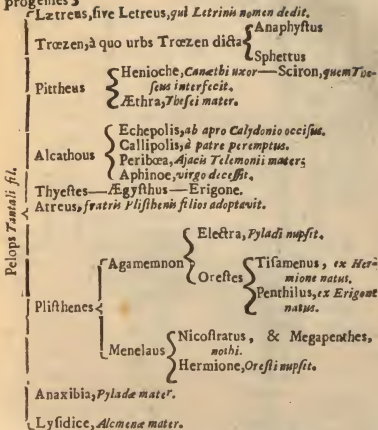 progenies
Lætreus, sive Letreus, qui Letrinis nomen dedit.
Trœzen, à quo urbs Trœzen dicta
Anaphystus
Sphettus
Pittheus
Henioche, Canæthi uxor—Sciron, quem The-
seus interfecit.
Æthra, Thesei mater.
Alcathous
Echepolis, ab apro Calydonio occisus.
Callipolis, à patre peremptus.
Peribœa, Ajacis Telemonii mater;
Aphinoe, virgo decessit.
Thyestes—Ægysthus—Erigone.
Atreus, fratris Plisthenis filios adoptavit.
Pelops Tantali fil.
Plisthenes
Agamemnon
Electra, Pyladi nupsit.
Orestes
Tisamenus, ex Her-
mione natus.
Penthilus, ex Erigone
natus.
Menelaus
Nicostratus, & Megapenthes,
nothi.
Hermione, Oresti nupsit.
Anaxibia, Pyladæ mater.
Lysidice, Alcmenæ mater.